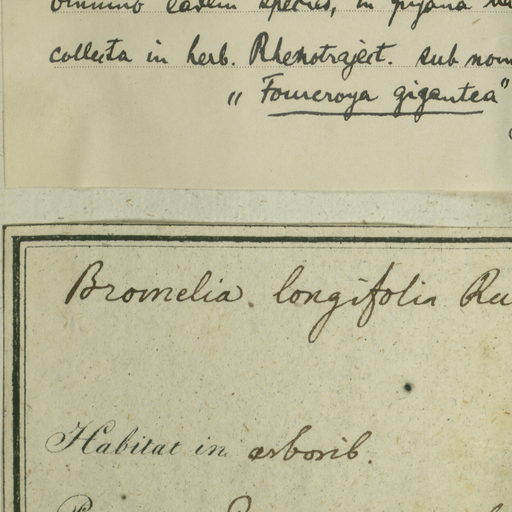 omnino eadem species, in
collecta in herb. Rhenotraject. sub nom
„ Fourcroya gigantea"
Bromelia longifolia Ru
Habitat in arborib.